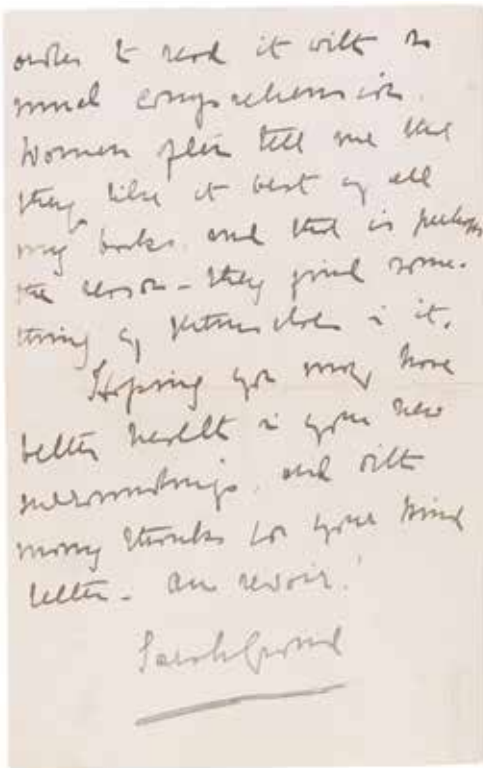 order to read it with so
much comprehension.
Women often tell me that
they like it best of all
my books. and that is perhaps
the reason - they find some-
thing of themselves in it.
Hoping you may have
better health in your new
surroundings. and with
many thanks for your kind
letter - au revoir!
Sarah Grand